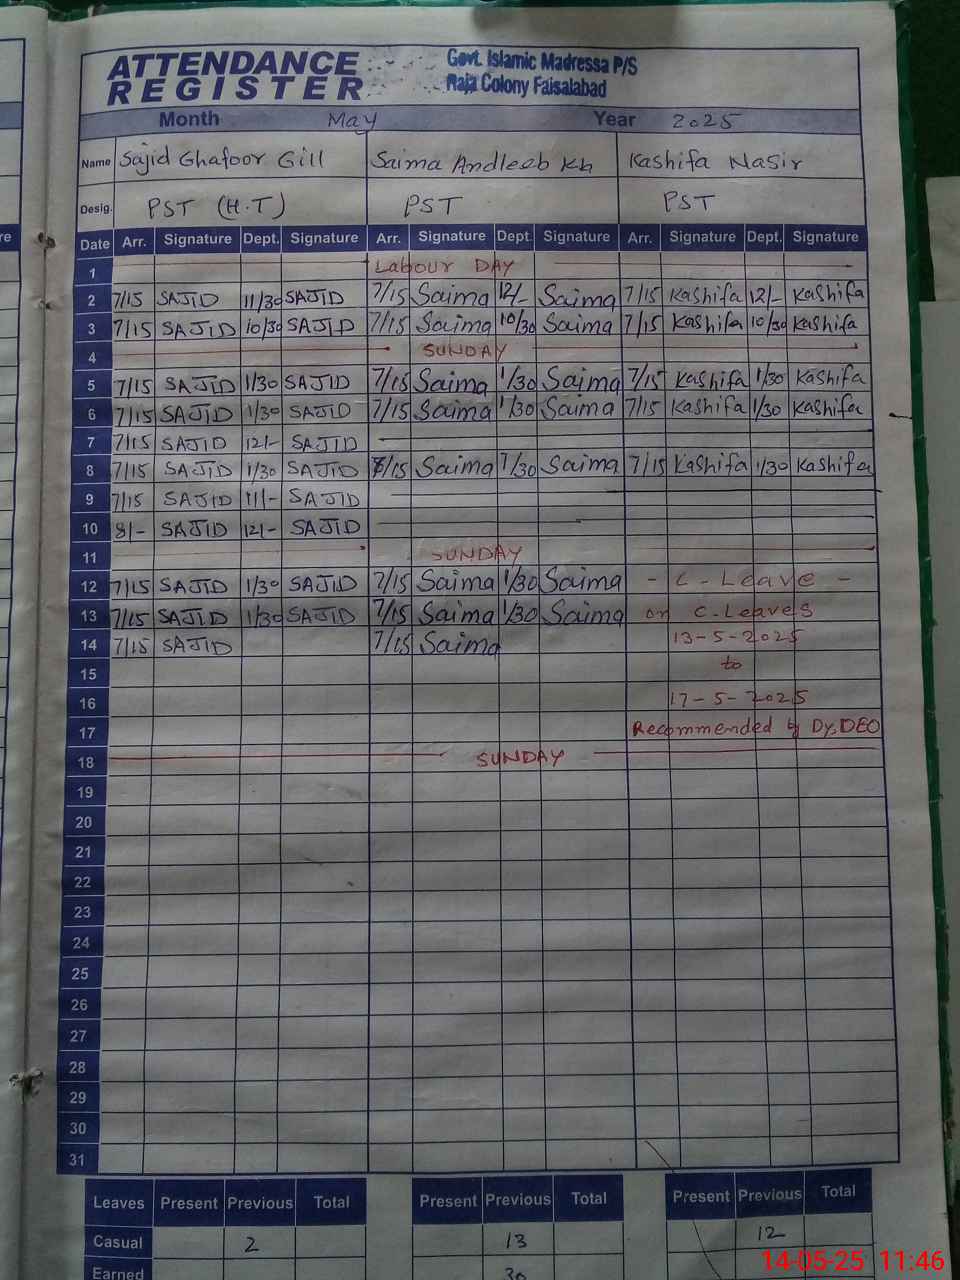 ATTENDANCE REGISTER
Govt. Islamic Madressa P/S
Raja Colony Faisalabad
Month May Year 2025
Name Sajid Ghafoor Gill Saima Andleeb Kh Kashifa Nasir
Desig. PST (H.T) PST PST
Date Arr. Signature Dept. Signature Arr. Signature Dept. Signature Arr. Signature Dept. Signature
1 Labour DAY
2 7/15 SAJID 11/30 SAJID 7/15 Saima 12/- Saima 7/15 Kashifa 12/- Kashifa
3 7/15 SAJID 10/30 SAJID 7/15 Saima 10/30 Saima 7/15 Kashifa 10/30 Kashifa
4 SUNDAY
5 7/15 SAJID 1/30 SAJID 7/15 Saima 1/30 Saima 7/15 Kashifa 1/30 Kashifa
6 7/15 SAJID 1/30 SAJID 7/15 Saima 1/30 Saima 7/15 Kashifa 1/30 Kashifa
7 7/15 SAJID 12/- SAJID
8 7/15 SAJID 1/30 SAJID 7/15 Saima 1/30 Saima 7/15 Kashifa 1/30 Kashifa
9 7/15 SAJID 11/- SAJID
10 8/- SAJID 12/- SAJID
11 SUNDAY
12 7/15 SAJID 1/30 SAJID 7/15 Saima 1/30 Saima - C - Leave -
13 7/15 SAJID 1/30 SAJID 7/15 Saima 1/30 Saima on C-Leaves
14 7/15 SAJID 7/15 Saima 13-5-2025
15 to
16 17-5-2025
17 Recommended by Dy.DEO
18 SUNDAY
19
20
21
22
23
24
25
26
27
28
29
30
31
Leaves Present Previous Total Present Previous Total Present Previous Total
Casual 2 13 12
Earned 30
14-05-25 11:46